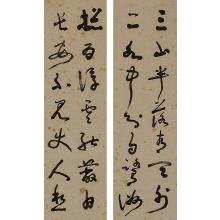 三山半落青天外
二水中分白鷺洲
總為浮雲能蔽日
長安不見使人愁